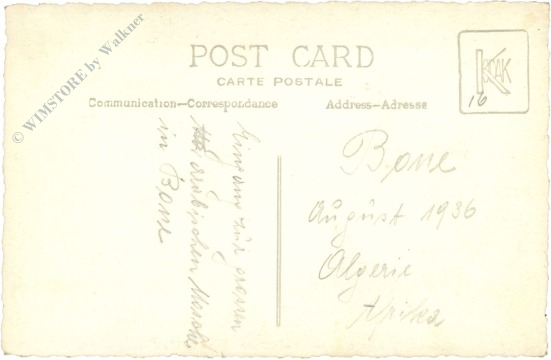 © WIMSTORE by Walkner
POST CARD
CARTE POSTALE
Communication—Correspondance
Address—Adresse
KODAK
16
Eingang zur grossen
arabischen Moschee
in Bone
Bone
August 1936
Algerie
Afrika